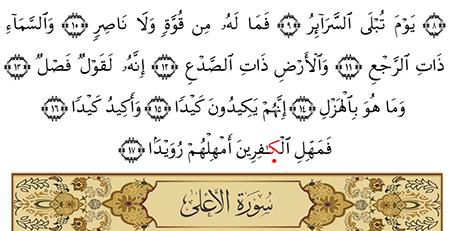 ﴿٨﴾ يَوْمَ تُبْلَى ٱلسَّرَآئِرُ ﴿٩﴾ فَمَا لَهُۥ مِن قُوَّةٍ وَلَا نَاصِرٍ ﴿١٠﴾ وَٱلسَّمَآءِ
ذَاتِ ٱلرَّجْعِ ﴿١١﴾ وَٱلْأَرْضِ ذَاتِ ٱلصَّدْعِ ﴿١٢﴾ إِنَّهُۥ لَقَوْلٌ فَصْلٌ ﴿١٣﴾
وَمَا هُوَ بِٱلْهَزْلِ ﴿١٤﴾ إِنَّهُمْ يَكِيدُونَ كَيْدًا ﴿١٥﴾ وَأَكِيدُ كَيْدًا ﴿١٦﴾
فَمَهِّلِ ٱلْكَٰفِرِينَ أَمْهِلْهُمْ رُوَيْدًۢا ﴿١٧﴾
سُورَةُ الأَعْلَى